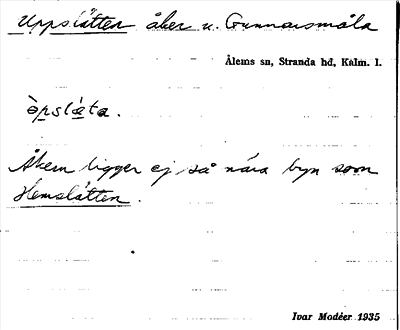 Uppslätten åker u. Gunnarsmåla
Ålems sn, Stranda hd, Kalm. l.
òpslæ̀ta.
Åkern ligger ej så nära byn som
Hemslätten.
Ivar Modéer 1935